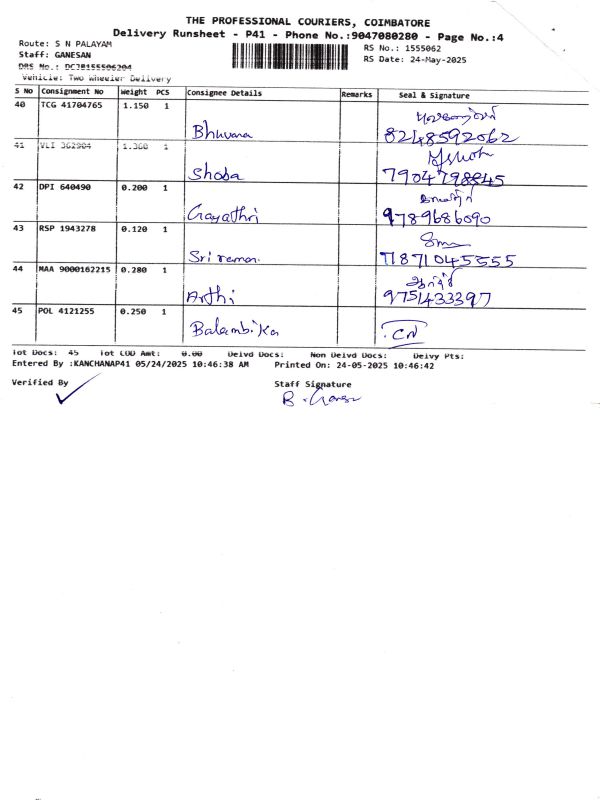 THE PROFESSIONAL COURIERS, COIMBATORE
Delivery Runsheet - P41 - Phone No.:9047080280 - Page No.:4
Route: S N PALAYAM
RS No.: 1555062
Staff: GANESAN
RS Date: 24-May-2025
DRS No.:
Vehicle: Two Wheeler Delivery
S No Consignment No Weight PCS Consignee Details Remarks Seal & Signature
40 TCG 41704765 1.150 1
Bhuvana 8248592062
41 VLI 362904 1.360 1
Shoba 7904798845
42 DPI 640490 0.200 1
Gayathri 9789686090
43 RSP 1943278 0.120 1
Sriraman 71871045555
44 MAA 9000162215 0.280 1
Arthi 9751433397
45 POL 4121255 0.250 1
Balambika
Tot Docs: 45 Tot COD Amt: 0.00 Delvd Docs: Non Delvd Docs: Delvy Pts:
Entered By :KANCHANAP41 05/24/2025 10:46:38 AM Printed On: 24-05-2025 10:46:42
Verified By Staff Signature